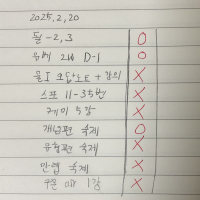 2025.2.20
필-2,3 O
유베 2회 D-1 O
물I 오답노트 + 강의 X
스포 11-35번 X
게이 5강 X
개념편 숙제 O
유형편 숙제 X
만렙 숙제 X
1강 X